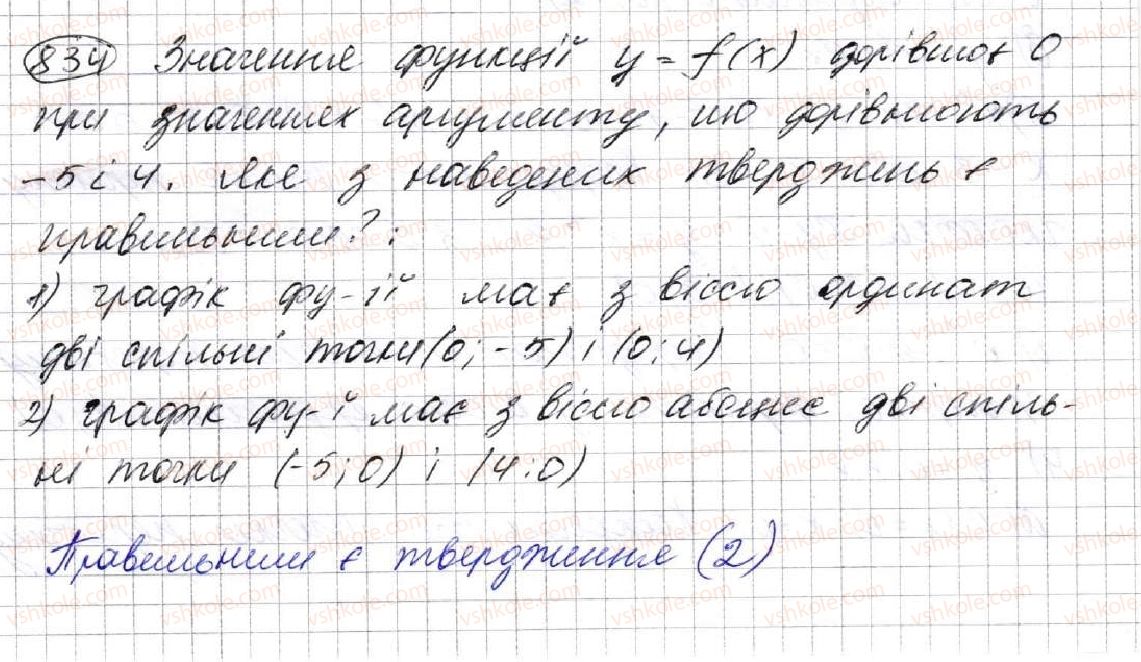 834 Значення функції y = f(x) дорівнює 0
при значеннях аргументу, що дорівнюють
-5 і 4. Яке з наведених тверджень є
правильним?:
1) графік фу-ії має з віссю ординат
дві спільні точки (0; -5) і (0; 4)
2) графік фу-ї має з віссю абсцис дві спіль-
ні точки (-5; 0) і (4; 0)
Правильним є твердження (2)